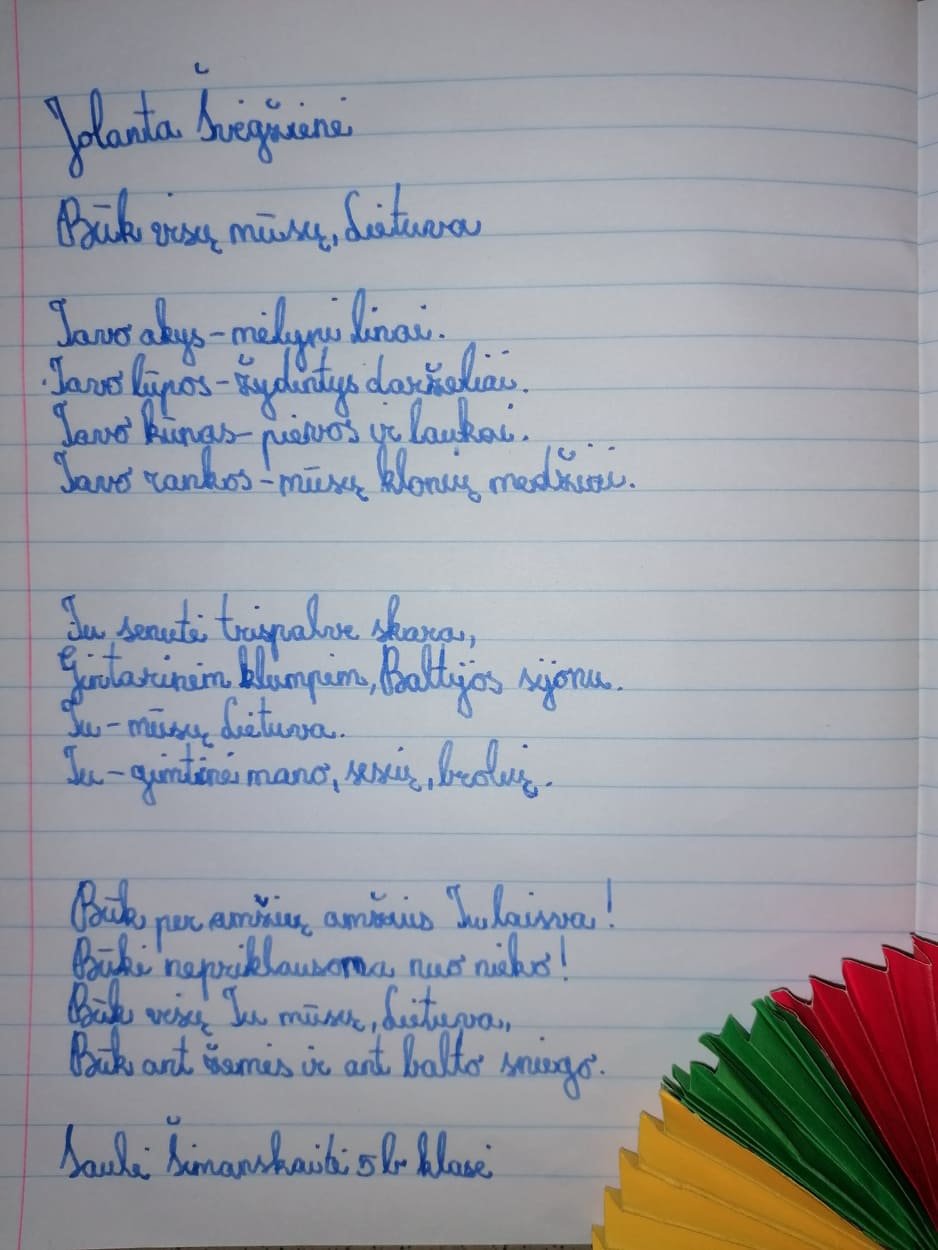 Jolanta Švegždienė
Būk visų mūsų, Lietuva
Tavo akys - mėlyni linai.
Tavo lūpos - žydintys darželiai.
Tavo kūnas - pievos ir laukai.
Tavo rankos - mūsų klonių medžiai.
Tu senutė trispalve skara,
Gintarinėm klumpėm, Baltijos sijonu.
Tu - mūsų Lietuva.
Tu - gimtinė mano, sesių, brolių.
Būk per amžių amžius Tu laisva!
Būki nepriklausoma nuo nieko!
Būk visų Tu mūsų, Lietuva,
Būk ant žemės ir ant balto sniego.
Saulė Šimanskaitė 5b klasė